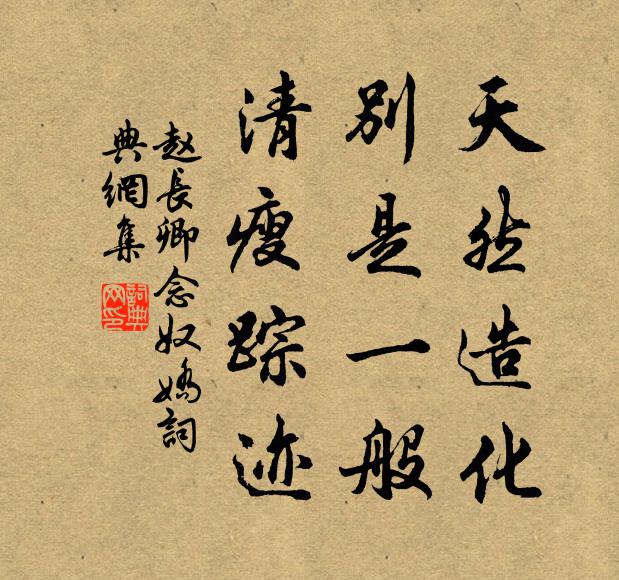 天然造化
别是一般
清瘦踪迹
赵長卿念奴嬌詞
典網集
詞典網印